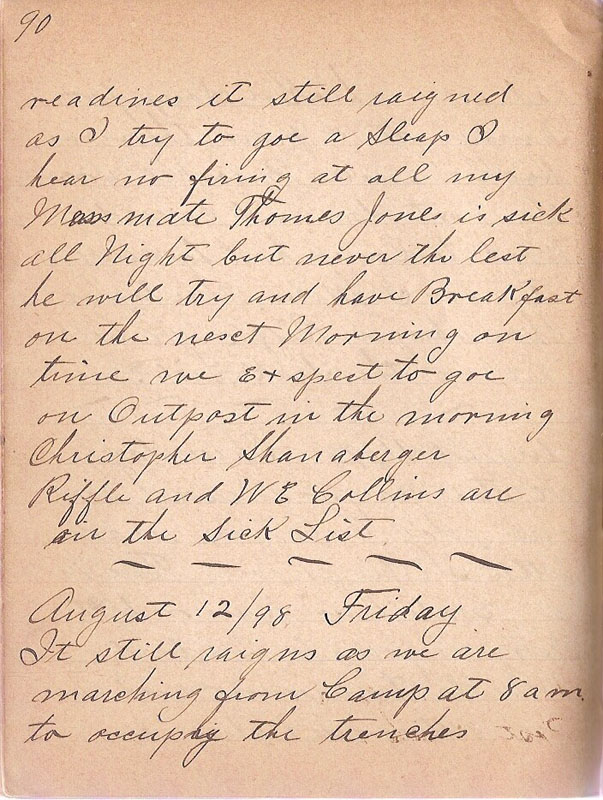 90
readines it still raigned
as I try to goe a Sleap I
hear no firing at all my
Mess mate Thomes Jones is sick
all Night but never the lest
he will try and have Breakfast
on the nesct Morning on
time we Exspect to goe
on Outpost in the morning
Christopher Shanaberger
Riffle and WE Collins are
on the Sick List
August 12/98 Friday
It still raigns as we are
marching from Camp at 8 am.
to occupy the trenches